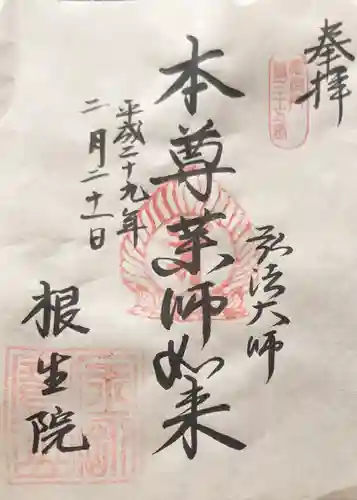 奉拝
弘法大師
本尊薬師如来
平成二十九年
二月二十一日
根生院